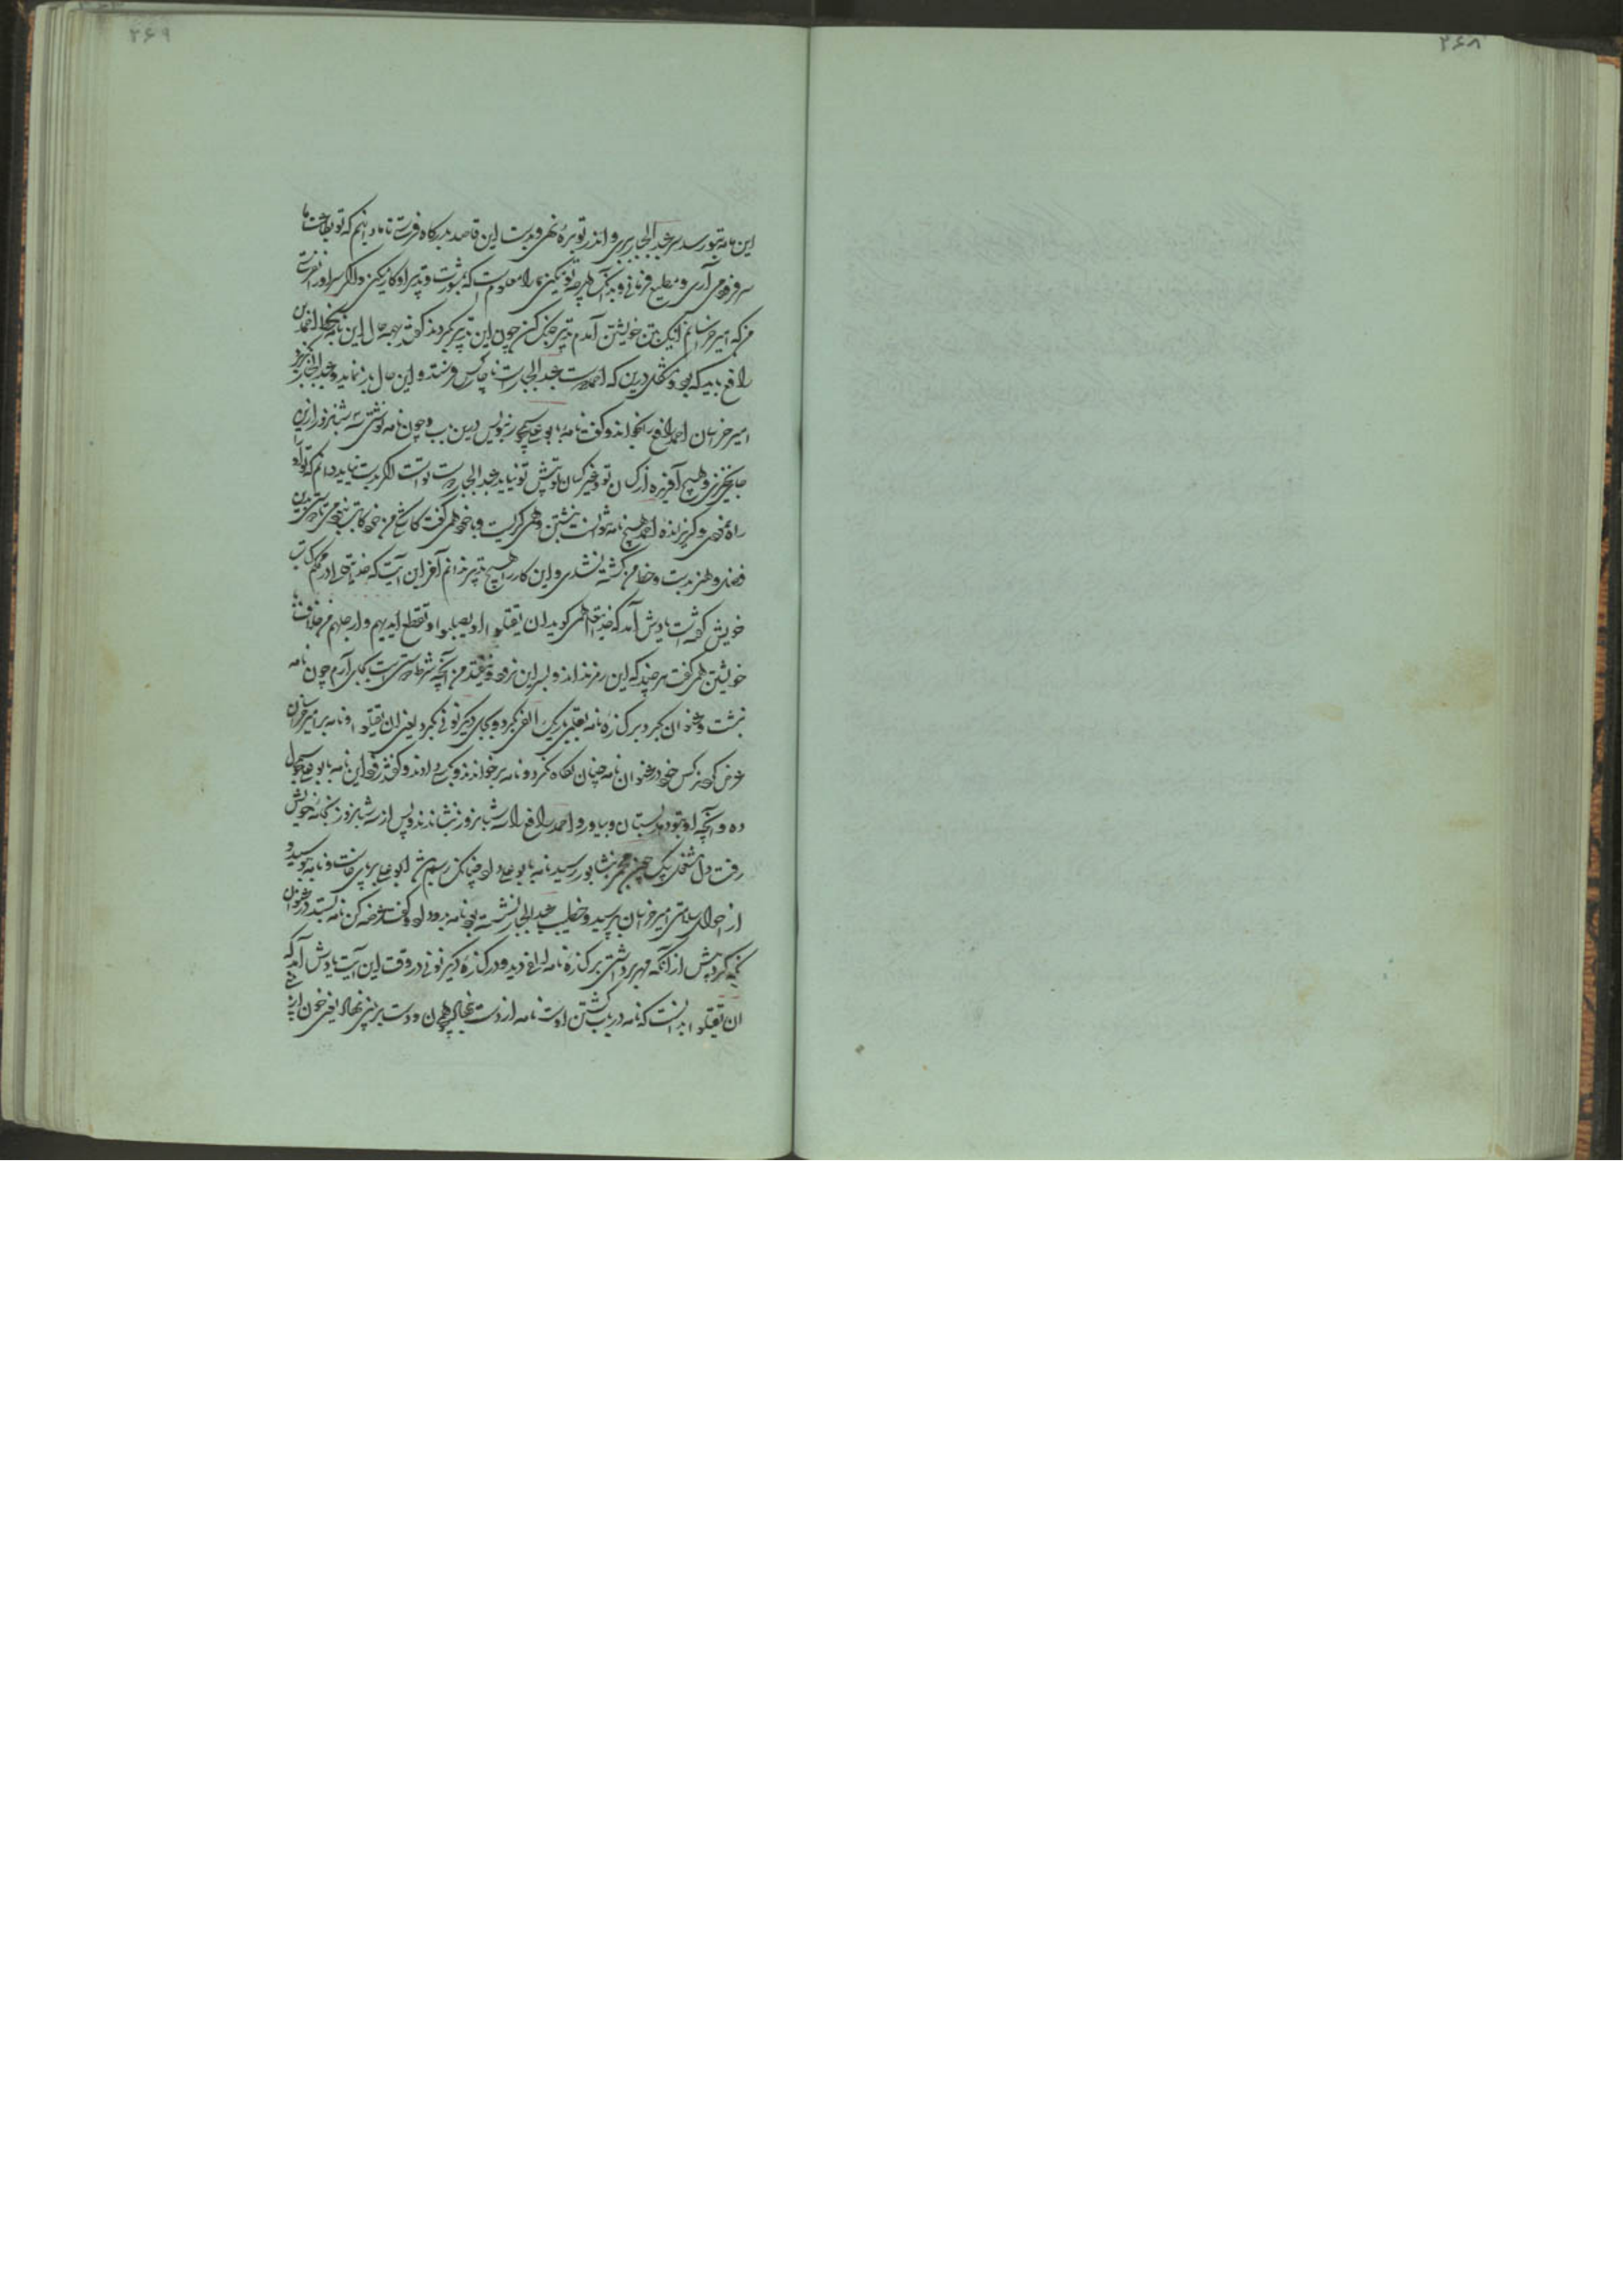 ۲۶۸
۲۶۹
این نامه بتو رسد سر عبدالجبار ببری و اندر توبره نهی و بدست این قاصد بدرگاه فرستی تا ما دانیم که تو بطاعت ما
سر فرو می آری و مطیع فرمانی و بدانک هرچه تو میکنی ما را معلوم است که بمشورت و تدبیر او کار میکنی و اگر سر او نفرستی
من که امیر خراسانم اینک بتن خویشتن آمدم تدبیر جنگ کن چون این تدبیر بکردند گفتند بهمه حال این نامه بخط احمد بن
رافع باید که بود و مشکل درین که احمد دوست عبدالجبار است ناچار کس فرستد و این حال باز نماید و عبدالجبار بگریزد
امیر خراسان احمد رافع را بخواند و گفت نامه به ابو علی سیمجور بنویس درین باب و چون نامه نوشتی سه شبانروز از این
جای نخیزی و هیچ آفریده از کسان تو و غیر کسان تو پیش تو نیاید عبدالجبار دوست تو است اگر بدست نیاید دانم که تو او را
راه نمودی و گریزانده احمد هیچ نمی توانست نبشتن و همی گریست و با خود همی گفت کاشکی من خود کاتب نبودمی تا دوستی بدین
فضل و هنر بدست و خط من کشته نشدی و این کار را هیچ تدبیر ندانم آخر این آیت که خدای تعالی اندر محکم کتاب
خویش گفته است یادش آمد که خدای تعالی همی گوید ان یقتلوا او یصلبوا او تقطع ایدیهم و ارجلهم من خلاف با
خویشتن همی گفت هر چند که این رمز نداند و بسر این نرود و نیفتد من آنچه شرط دوستی است بجای آرم چون نامه
نبشت و عنوان کرد بر کناره نامه بقلمی باریک الفی بکرد و بجای دیگر نونی بکرد یعنی ان یقتلوا و نامه بر امیر خراسان
عرض کردند کس خود در عنوان نامه چنان نگاه نکرد و نامه بر خواندند و بکسی دادند و گفتند رو این نامه بابو علی سیمجور
ده و آنچه او بتو دهد بستان و بیاور و احمد رافع را سه شبانروز بنشاندند و پس از سه شبانروز بخانه خویش
رفت دل مشغول پیک چون بنشابور رسید نامه بابو علی داد چنانک رسم باشد ابو علی بر پای خاست و نامه ببوسید و
از احوال سلامتی امیر خراسان پرسید و خطیب عبدالجبار نشسته بود نامه بدو داد و گفت عرضه کن نامه بستد در عنوان
نگه کرد پیش از آنکه مهر برداشتی بر کناره نامه الفی دید و در کناره دیگر نونی در وقت این آیت یادش آمد که
ان یقتلوا بدانست که نامه در باب کشتن او است نامه از دست بنهاد و دست بر بینی نهاد یعنی خون از بینی